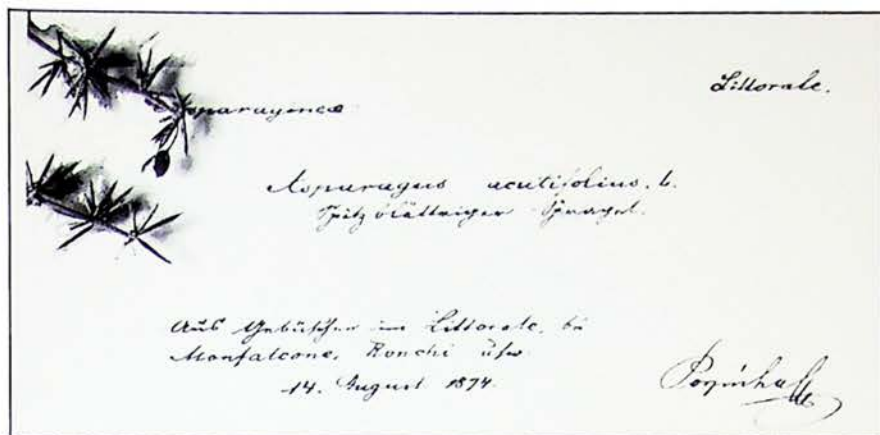 Littorale.
Asparagineae
Asparagus acutifolius. L.
Spitzblättriger Spargel.
Aus Gebüschen im Littorale, bei
Monfalcone, Ronchi usw
14. August 1874.